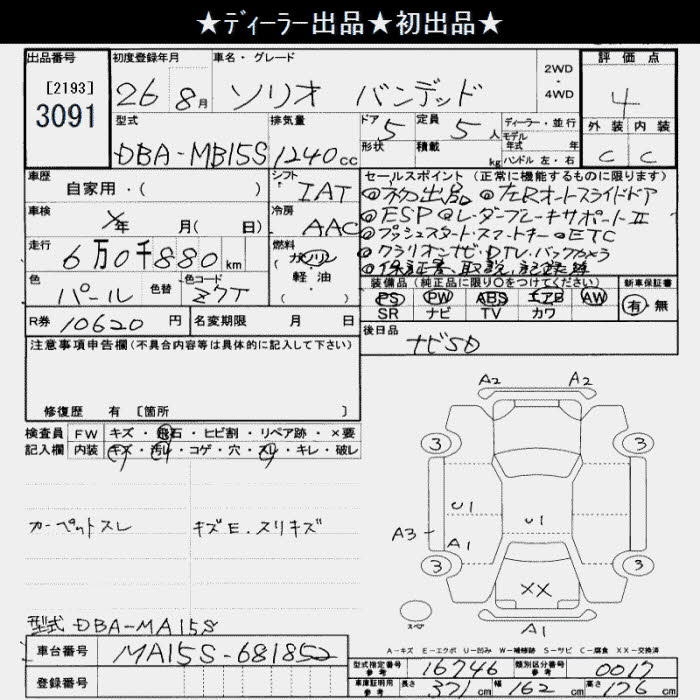 ★ディーラー出品★初出品★
出品番号
[2193]
3091
初度登録年月
26 8月
車名・グレード
ソリオ バンデッド
2WD
・
4WD
評価点
4
外装 内装
C C
型式
DBA-MB15S
排気量
1240cc
ドア
5
形状
定員
5人
積載
kg
ディーラー・並行
モデル
年式 年
ハンドル 左・右
車歴
自家用・( )
シフト
IAT
車検
年 月( 日)
冷房
AAC
走行
6万0千880km
燃料
ガソリン
軽・油
( )
色
パール
色替
色コード
Z7T
R券 10620円
名変期限 月 日
セールスポイント(正常に機能するものに限ります)
◎初出品 ◎左Rオートスライドドア
◎ESP ◎レーダーブレーキサポートⅡ
◎プッシュスタート・スマートキー ◎ETC
◎クラリオンナビ・DTV.バックカメラ
◎保証書、取説、記録簿
装備品(純正品に限り○をつけてください)
PS PW ABS エアB AW
SR ナビ TV カワ
新車保証書
有・無
後日品
ナビSD
注意事項申告欄(不具合内容等は具体的に記入して下さい)
修復歴 有 〔箇所 〕
検査員
記入欄
FW キズ・飛石・ヒビ割・リペア跡・×要
内装 キズ・汚れ・コゲ・穴・スレ・キレ・破レ
カーペットスレ
キズE.スリキズ
A2 A2
3 3
U1
U1
A3
A1
3 3
XX
スペア
A1
型式 DBA-MA15S
A-キズ E-エクボ U-凹み W-補修跡 S-サビ C-腐食 XX-交換済
車台番号 MA15S-681852
登録番号
型式指定番号
参考
16746
類別区分番号
参考
0017
車庫証明用
参考
長さ 371cm 幅 162cm 高さ 176cm